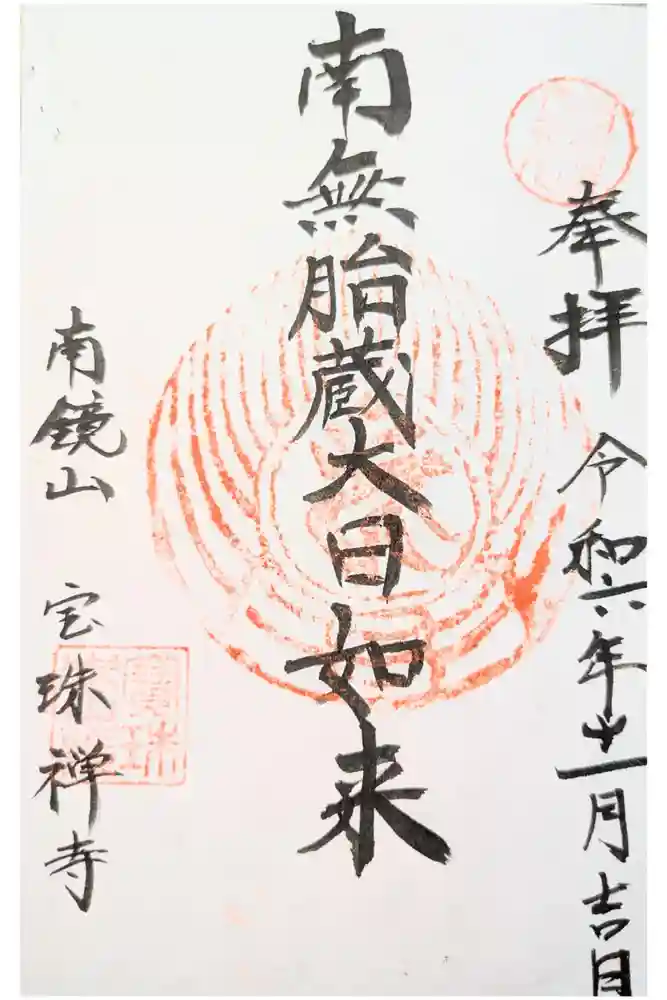 奉拝 令和六年十一月吉日
南無胎蔵大日如来
南鏡山 宝珠禅寺